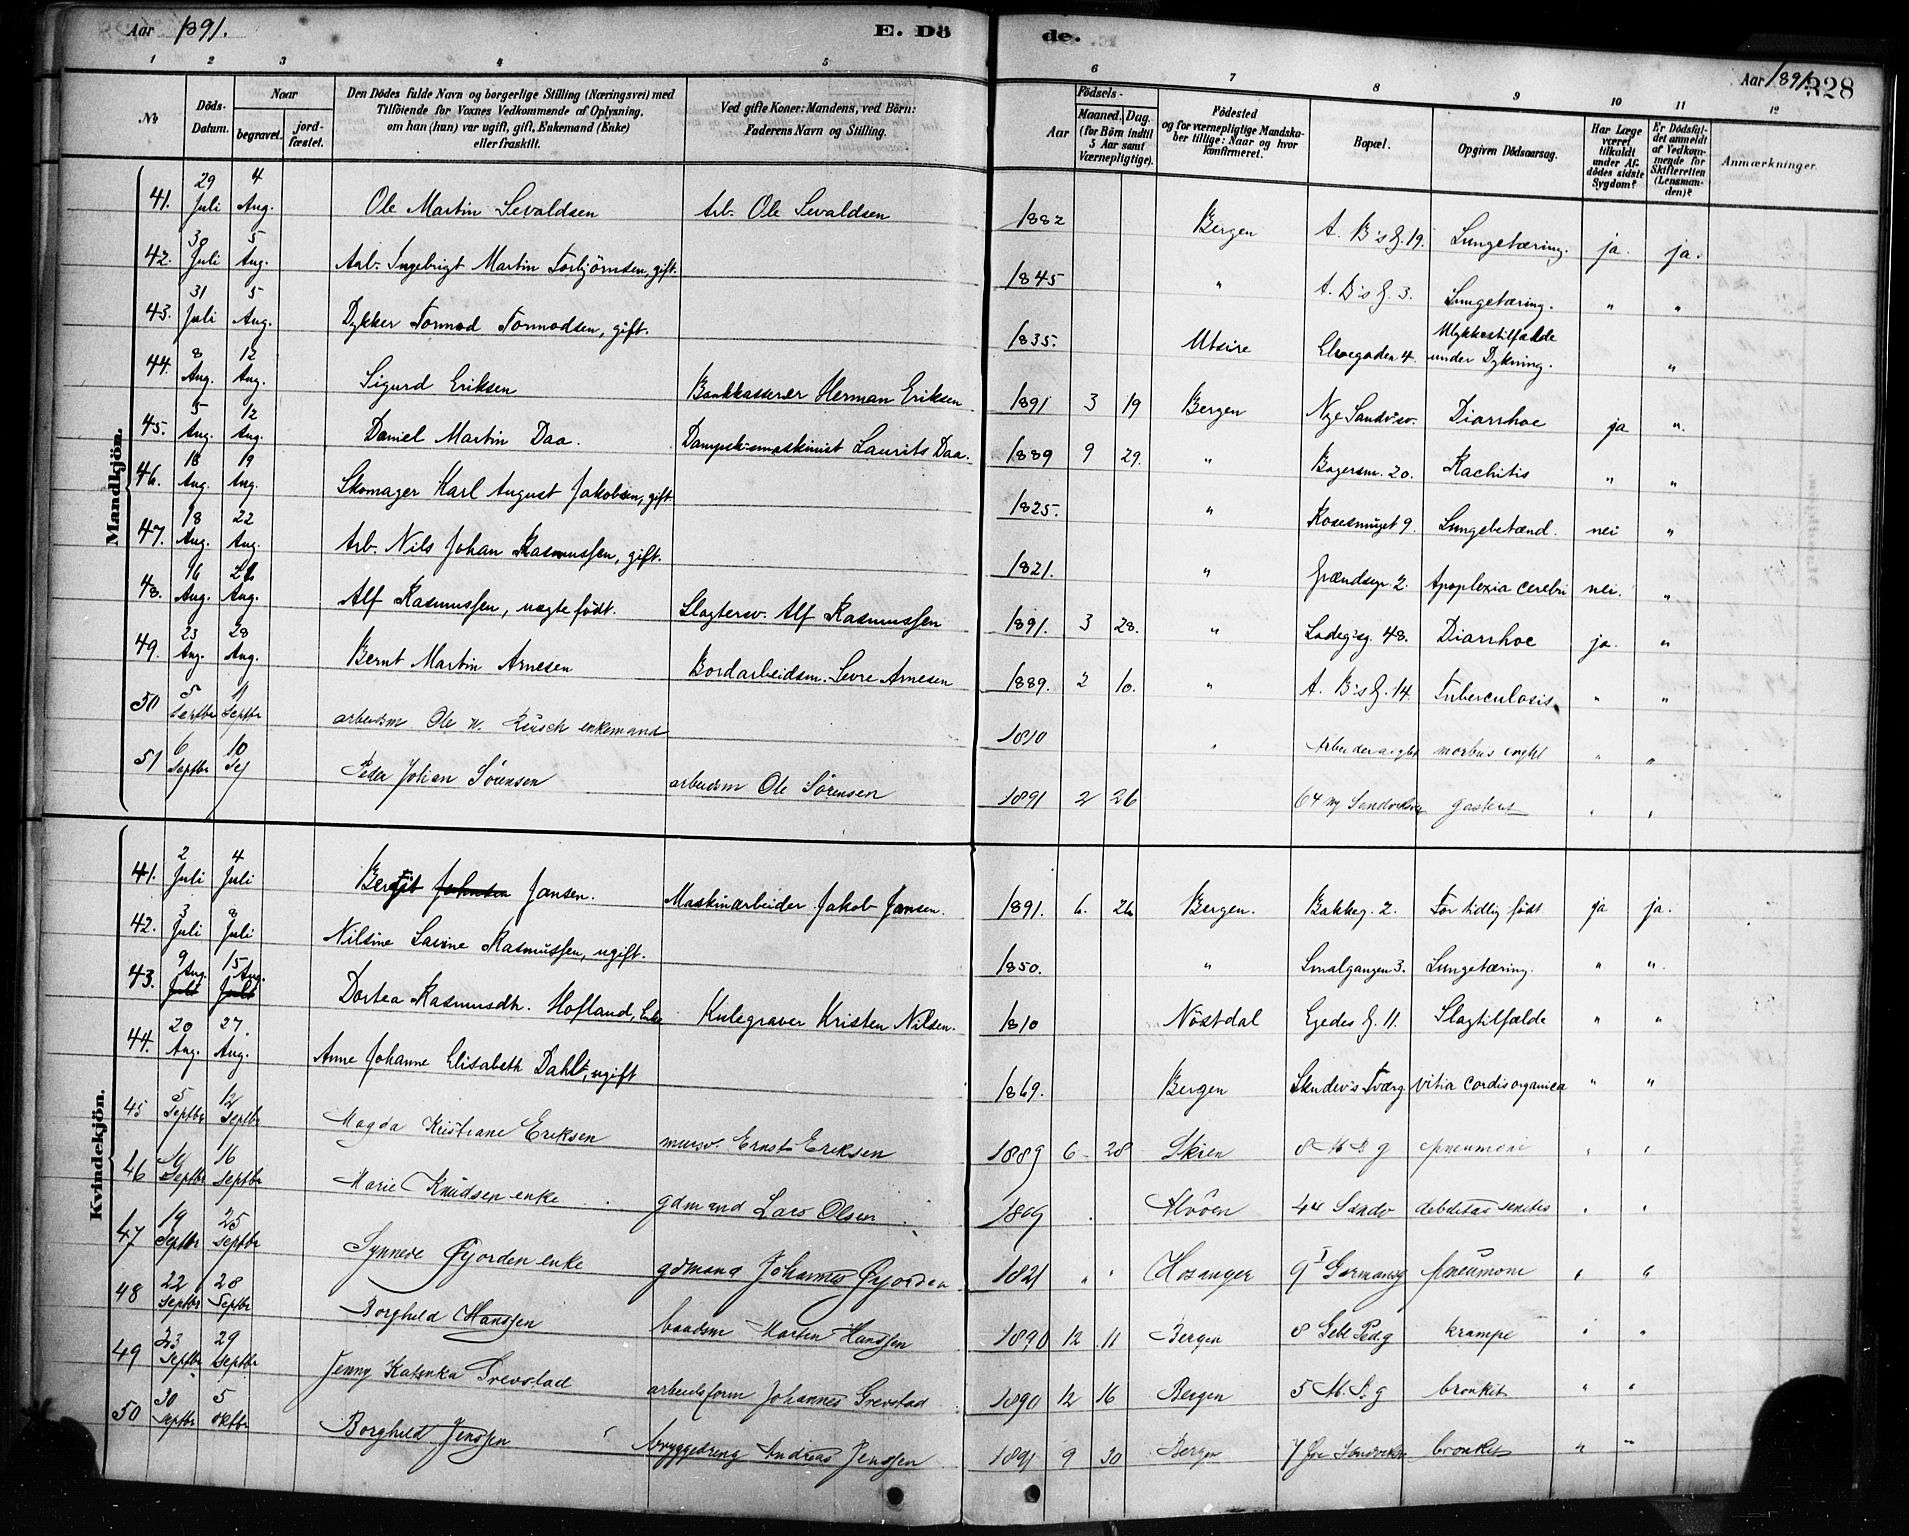 Aar 1891. E. Dö de. Aar 1891. 328
1 2 3 4 5 6 7 8 9 10 11 12
No
Döds-Datum.
Naar
begravet.
jord-fæstet.
Den Dödes fulde Navn og borgerlige Stilling (Næringsvei) med
Tilföiende for Voxnes Vedkommende af Oplysning,
om han (hun) var ugift, gift, Enkemand (Enke)
eller fraskilt.
Ved gifte Koner: Mandens, ved Börn:
Faderens Navn og Stilling.
Födsels-
Aar
Maaned. Dag.
(for Börn indtil
5 Aar samt
Værnepligtige).
Födested
og for værnepligtige Mandska-
ber tillige: Naar og hvor
konfirmeret.
Bopæl.
Opgiven Dödsaarsag.
Har Læge
været
tilkaldt
under Af-
dödes sidste
Sygdom?
Er Dödsfal-
det anmeldt
af Vedkom-
mende for
Skifteretten
(Lensman-
den)?
Anmærkninger.
Mandkjön.
41. 29 Juli 4 Aug. Ole Martin Sevaldsen Arb. Ole Sevaldsen 1882 Bergen A. B's G. 19. Lungetæring. ja. ja.
42. 30 Juli 5 Aug. Arb. Ingebrigt Martin Torbjörnsen, gift. 1845 " A. B's G. 3. Lungetæring. " "
43. 31 Juli 5 Aug. Dykker Tormod Tormodsen, gift. 1835. Utsire Elvegaden 4. Ulykkestilfælde under Dykning. "
44. 8 Aug. 12 Aug. Sigurd Eriksen Bankkasserer Herman Eriksen 1891 3 19 Bergen Nye Sandvsv. Diarrhoe ja "
45. 5 Aug. 12 Aug. Daniel Martin Daa. Dampsk.smaskinist Laurits Daa. 1889 9 29. " Bagersm. 20. Rachitis " "
46. 18 Aug. 19 Aug. Skomager Karl August Jakobsen, gift 1825. " Rosesmuget 9. Lungebetænd. nei "
47. 18 Aug. 22 Aug. Arb. Nils Johan Rasmussen, gift. 1821. " Grændsegr. 2. Apoplexia cerebri nei. "
48. 16 Aug. 21 Aug. Alf Rasmussen, uægte födt. Slagtersv. Alf Rasmussen 1891. 3 28. " Ladeg'sg. 48. Diarrhoe ja. "
49. 23 Aug. 28 Aug. Bernt Martin Arnesen Bordarbeidsm. Sevre Arnesen 1889. 2 10. " A. B's G. 14. Tuberculosis " "
50 5 Septbr 11 Septbr arbeidsm Ole N. Reusch enkemand 1810 " morbus " "
51 6 Septbr 10 Se Peder Johan Sörensen arbeidsm Ole Sörensen 1891 2 26 64 ny Sandviksv " "
Kvindekjön.
41. 2 Juli 4 Juli Bergit Johnsen Jansen. Maskinarbeider Jakob Jansen. 1891. 6. 26 Bergen. Bakkeg. 2. For tidlig födt ja ja.
42. 3 Juli 8 Juli Nilsine Lavine Rasmussen, ugift. 1850. " Smalgangen 3. Lungetæring. " "
43. 9 Aug. Juli 15 Aug. Juli Dortea Rasmusdtr. Hofland, Enke Kulegraver Kristen Nilsen. 1810 Nöstdal Egedes G. 11. Slagtilfælde " "
44. 20 Aug. 27. Aug. Anne Johanne Elisabeth Dahl, ugift 1869. Bergen Skudev's Tværg vitia cordis organica " "
45 5 Septbr 12 Septbr Magda Kristiane Eriksen mursv. Ernst Eriksen 1889 6 28 Skien 8 M S g pneumoni " "
46 Septbr 16 Septbr Marie Knudsen enke gdmand Lars Olsen 1809 Alvöen 44 Sandv debilitas senilis " "
47 19 Septbr 25 Septbr Synneve Öyjorden enke gdmand Johannes Öyjorden 1821 " " Hosanger 9 I Garmansg pneumoni " "
48 22 Septbr 28 Septbr Borghild Hanssen baadsm Morten Hanssen 1890 12 11 Bergen 8 Geble Pedg krampe " "
49 23 Septbr 29 Septbr Jenny Katinka Grevstad arbeidsform Johannes Grevstad 1890 12 16 Bergen 5 M. S. g bronkit " "
50 30 Septbr 5 Oktbr Borghild Jenssen bryggedreng Andreas Jenssen 1891 9 30 Bergen 7 Sandviksv bronkit " "